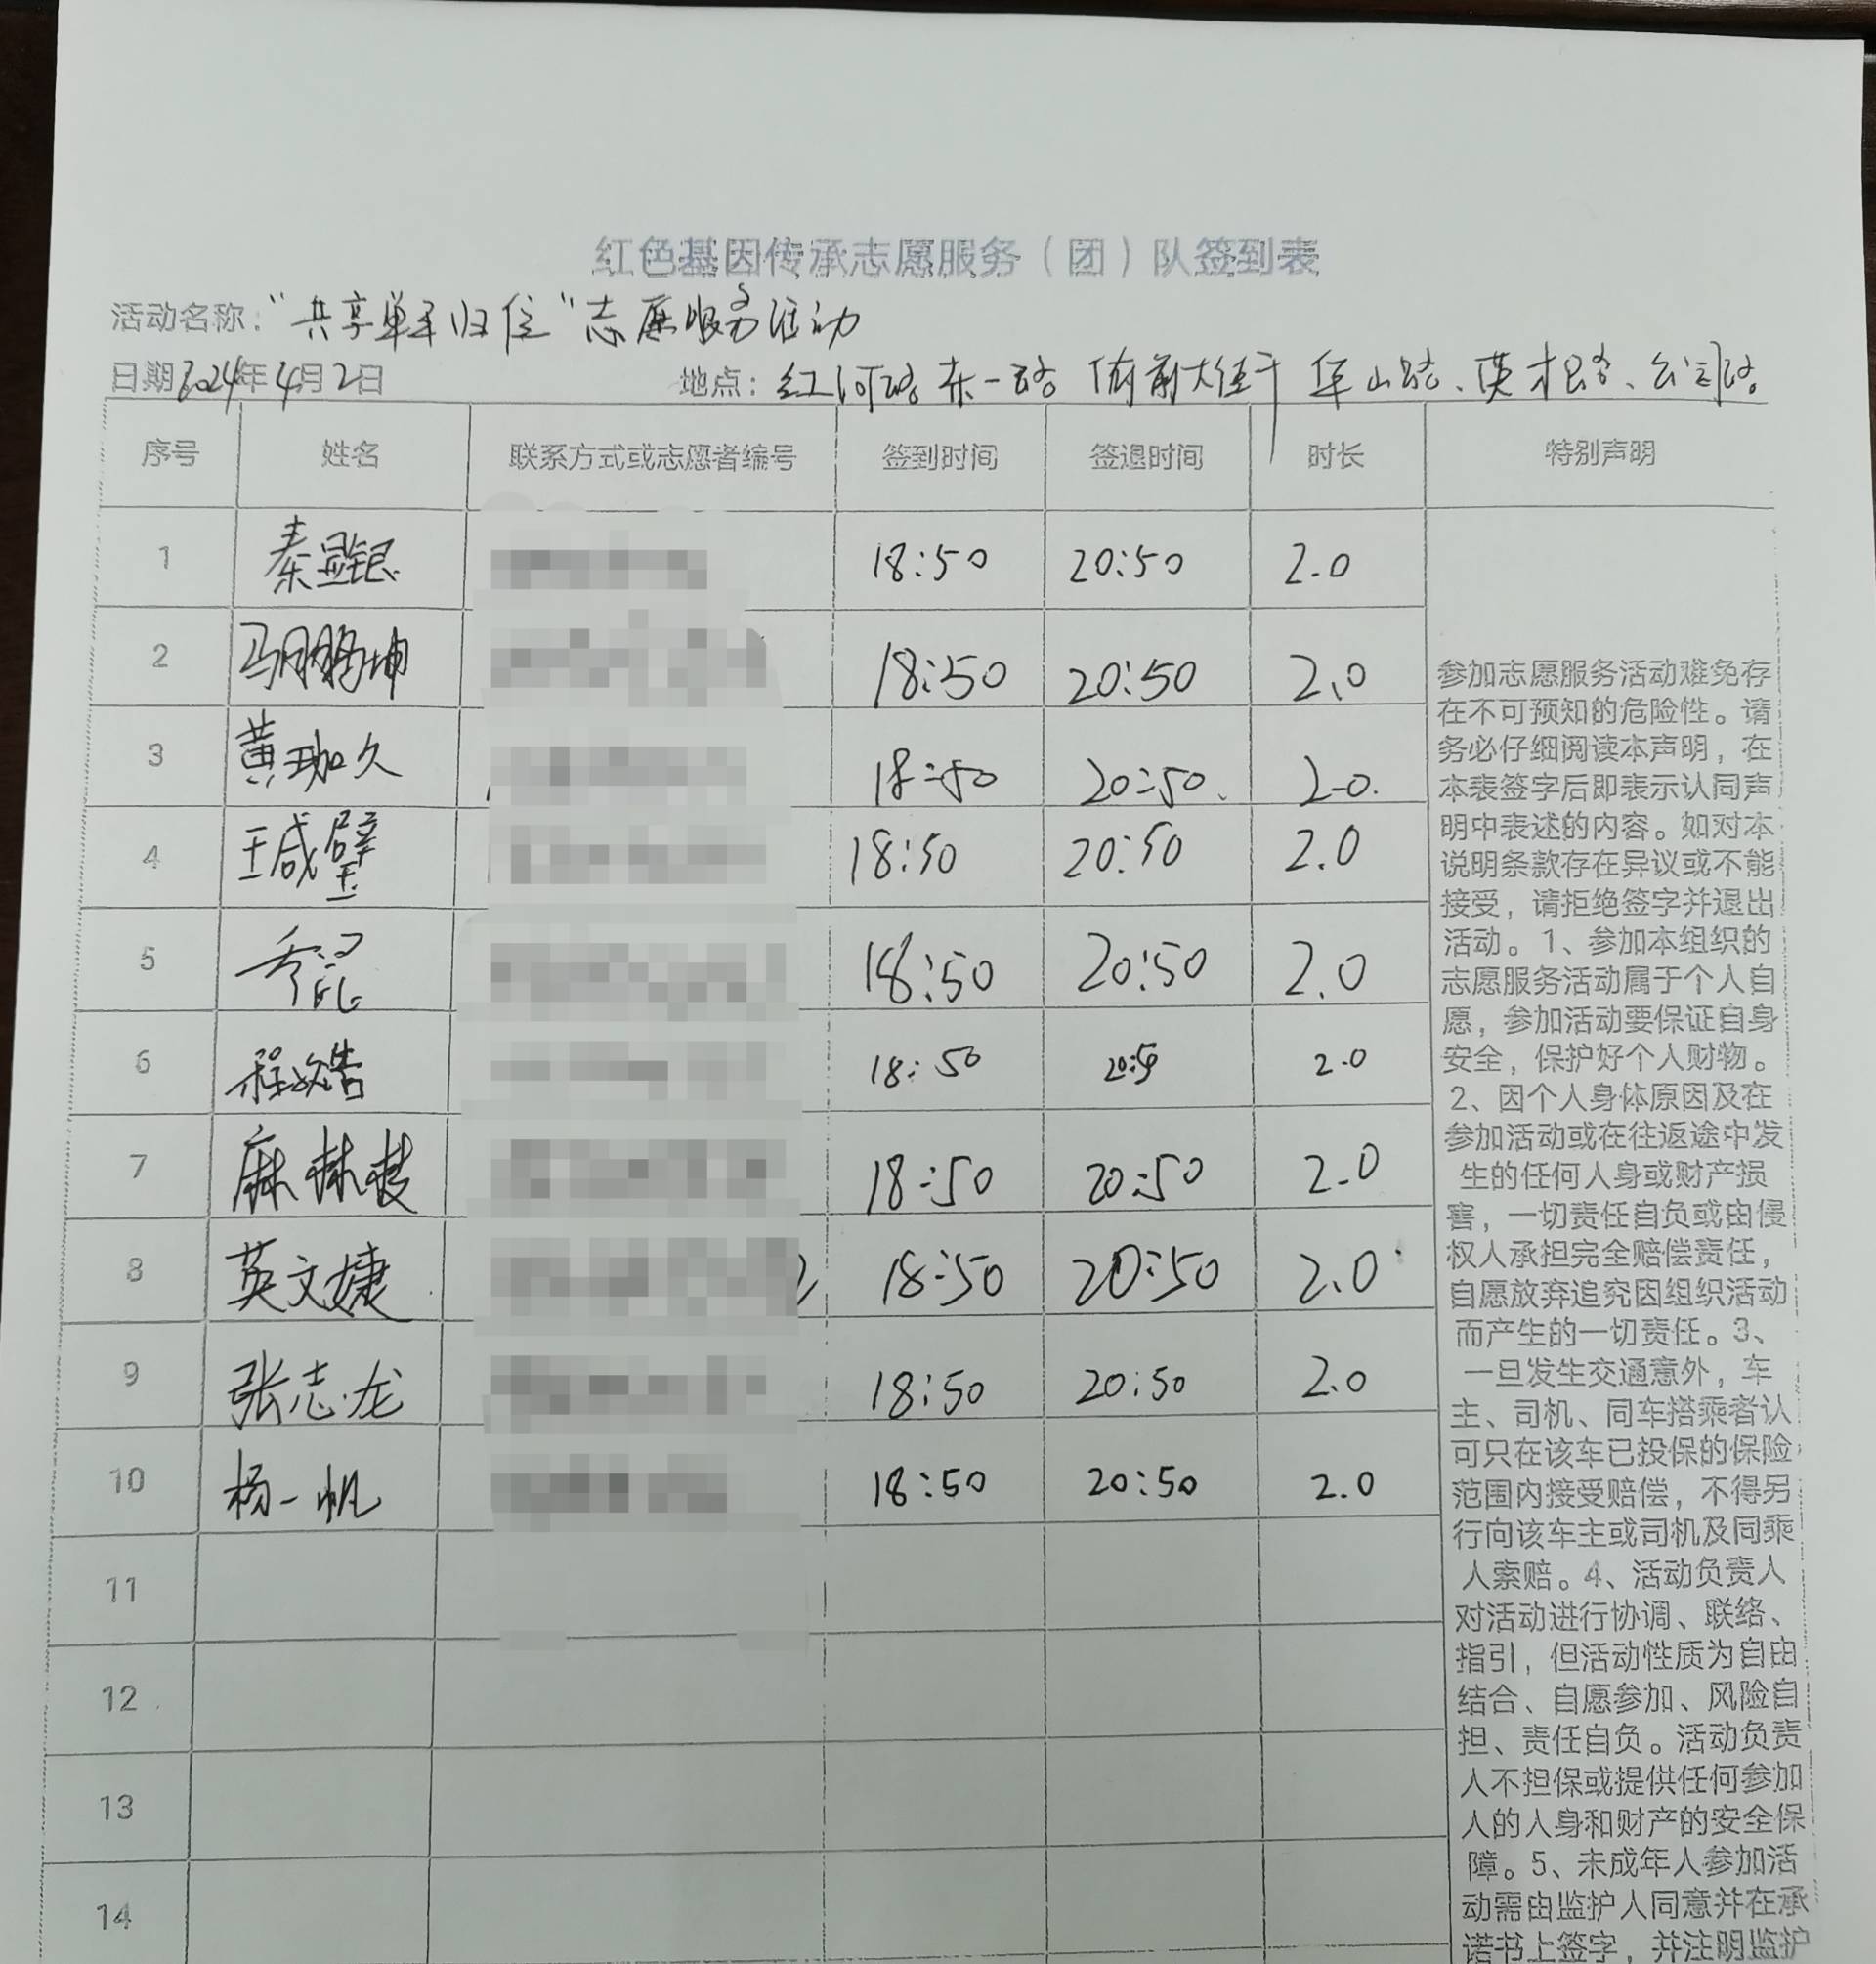 红色基因传承志愿服务（团）队签到表
活动名称：“共享单车归位”志愿服务活动
日期2024年4月2日 地点：红河路东一路 府前大街 华山路、英才路、公园路
序号 姓名 联系方式或志愿者编号 签到时间 签退时间 时长 特别声明
1 秦显银 18:50 20:50 2.0
2 马鹏坤 18:50 20:50 2.0
3 黄珈久 18:50 20:50 2.0
4 王咸璧 18:50 20:50 2.0
5 18:50 20:50 2.0
6 程文浩 18:50 20:50 2.0
7 麻林 18:50 20:50 2.0
8 英文婕 18:50 20:50 2.0
9 张志龙 18:50 20:50 2.0
10 杨一帆 18:50 20:50 2.0
11
12
13
14
参加志愿服务活动难免存
在不可预知的危险性。请
务必仔细阅读本声明，在
本表签字后即表示认同声
明中表述的内容。如对本
说明条款存在异议或不能
接受，请拒绝签字并退出
活动。1、参加本组织的
志愿服务活动属于个人自
愿，参加活动要保证自身
安全，保护好个人财物。
2、因个人身体原因及在
参加活动或在往返途中发
生的任何人身或财产损
害，一切责任自负或由侵
权人承担完全赔偿责任，
自愿放弃追究因组织活动
而产生的一切责任。3、
一旦发生交通意外，车
主、司机、同车搭乘者认
可只在该车已投保的保险
范围内接受赔偿，不得另
行向该车主或司机及同乘
人索赔。4、活动负责人
对活动进行协调、联络、
指引，但活动性质为自由
结合、自愿参加、风险自
担、责任自负。活动负责
人不担保或提供任何参加
人的人身和财产的安全保
障。5、未成年人参加活
动需由监护人同意并在承
诺书上签字，并注明监护